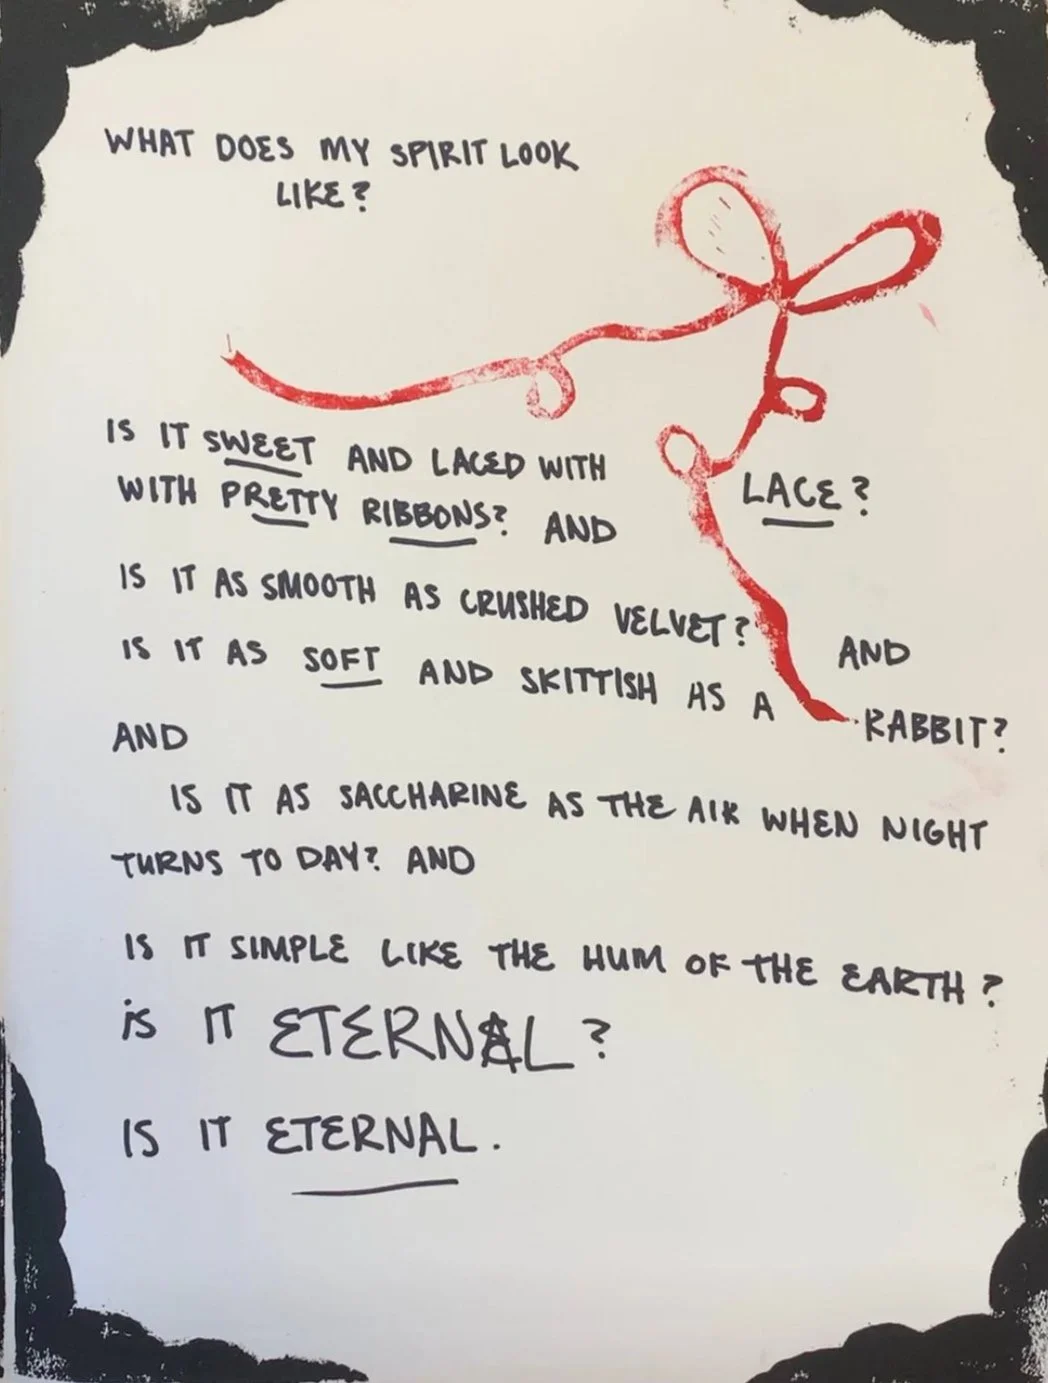 WHAT DOES MY SPIRIT LOOK
LIKE?
IS IT SWEET AND LACED WITH LACE?
WITH PRETTY RIBBONS? AND
IS IT AS SMOOTH AS CRUSHED VELVET? AND
IS IT AS SOFT AND SKITTISH AS A RABBIT?
AND
IS IT AS SACCHARINE AS THE AIR WHEN NIGHT
TURNS TO DAY? AND
IS IT SIMPLE LIKE THE HUM OF THE EARTH?
is IT ETERNAL?
IS IT ETERNAL.